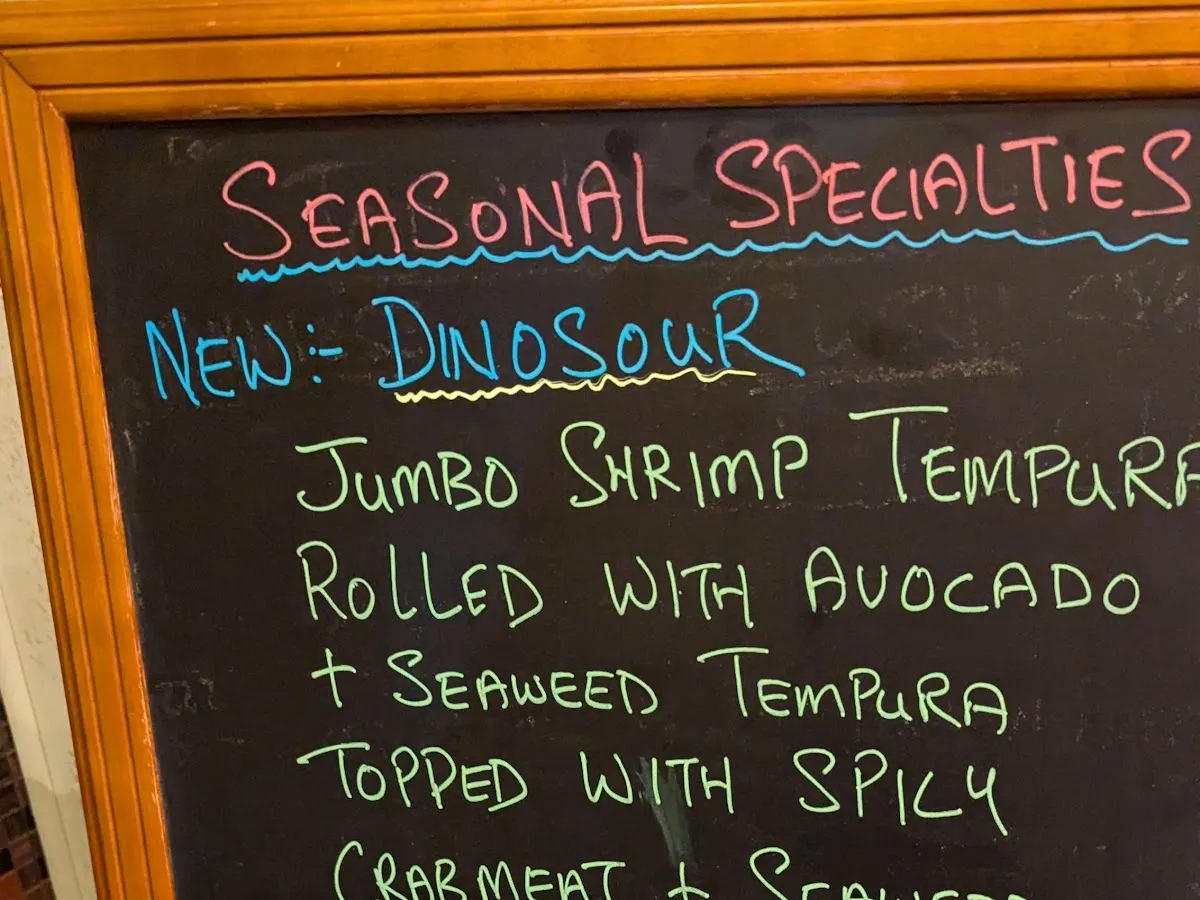 SEASONAL SPECIALTIES
NEW:- DINOSOUR
JUMBO SHRIMP TEMPURA
ROLLED WITH AVOCADO
+ SEAWEED TEMPURA
TOPPED WITH SPICY
CRABMEAT + SEAWEED